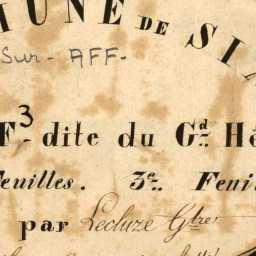 MUNE DE SIX
Sur-AFF-
F³ dite du Gd. Hé
Feuilles. 3e. Feuil
par Lecluze Gtre